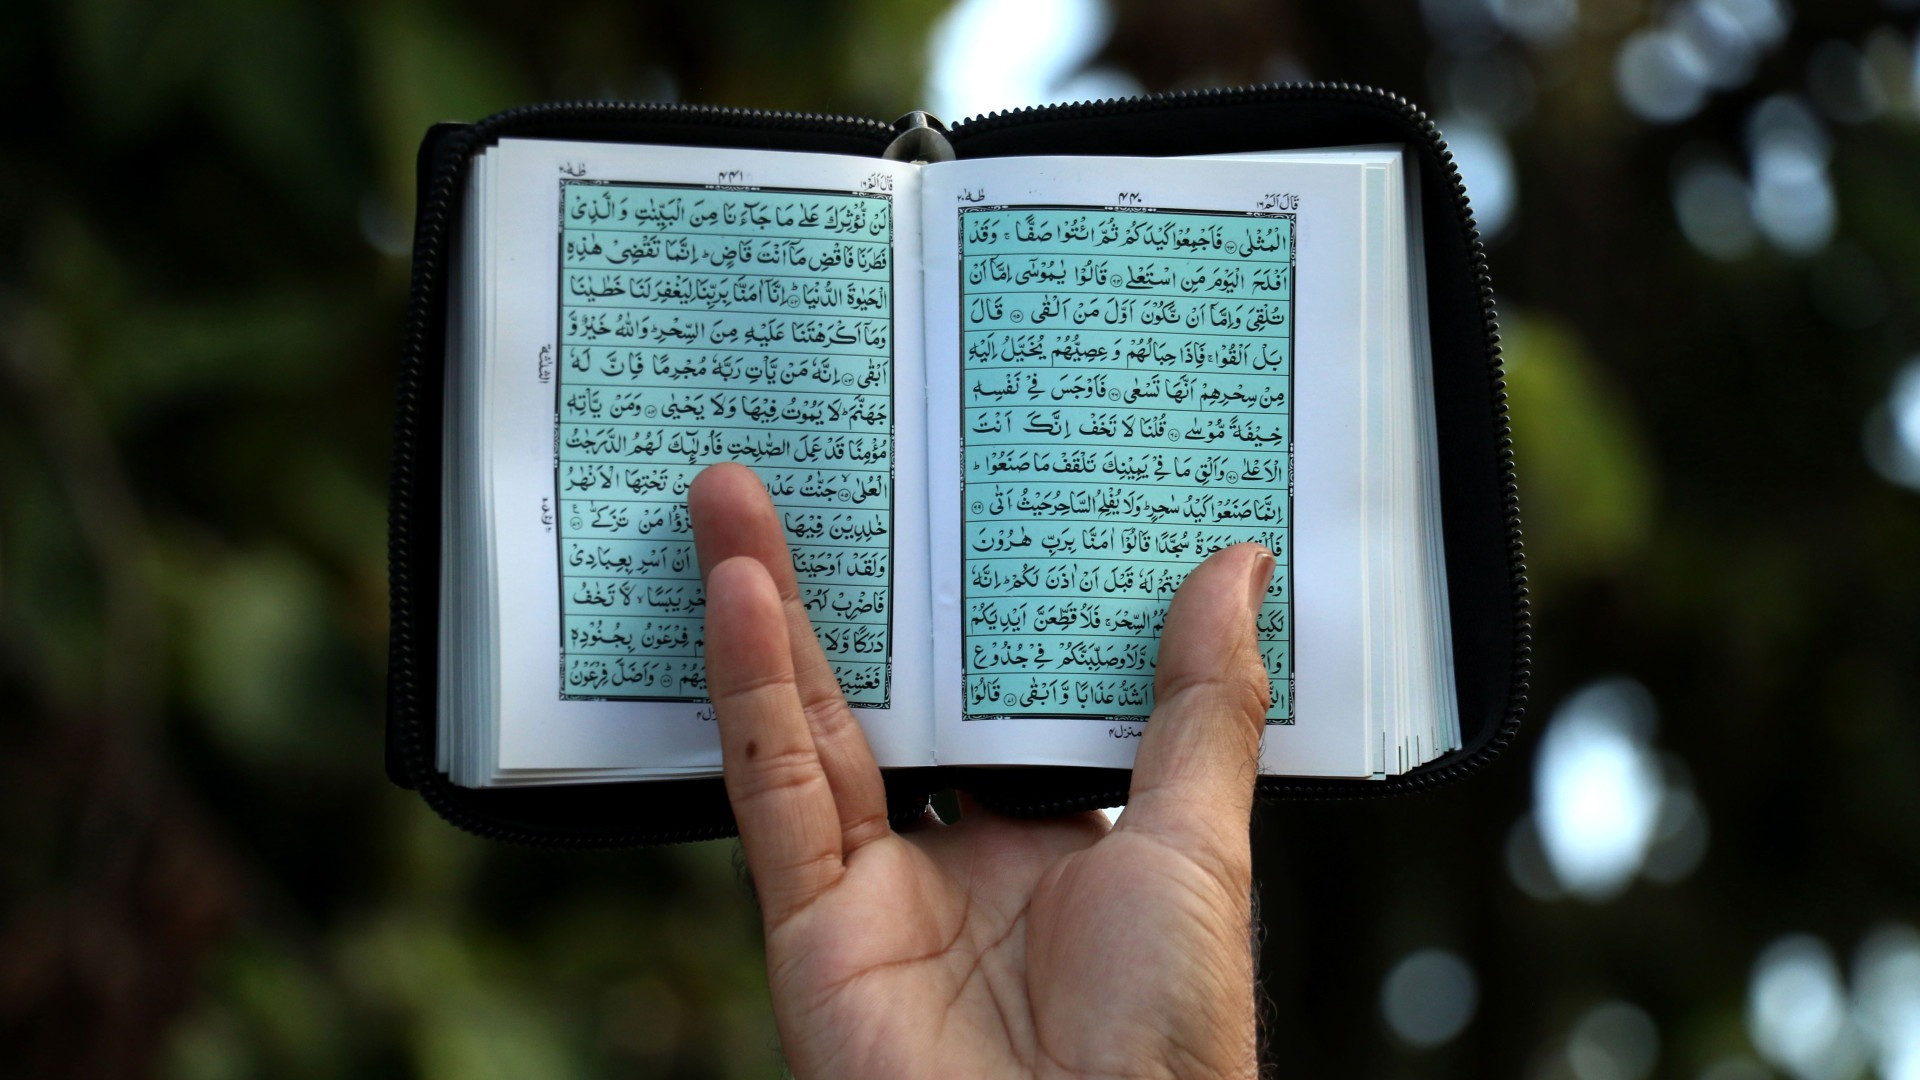 قَالَ اَلَمْ ١٦
٤٤٠
طٰهٰ ٢٠
الْمُثْلٰى ﴿٦٣﴾ فَاَجْمِعُوْا كَيْدَكُمْ ثُمَّ ائْتُوْا صَفًّا ۚ وَقَدْ
اَفْلَحَ الْيَوْمَ مَنِ اسْتَعْلٰى ﴿٦٤﴾ قَالُوْا يٰمُوْسٰٓى اِمَّآ اَنْ
تُلْقِىَ وَاِمَّآ اَنْ نَّكُوْنَ اَوَّلَ مَنْ اَلْقٰى ﴿٦٥﴾ قَالَ
بَلْ اَلْقُوْا ۚ فَاِذَا حِبَالُهُمْ وَعِصِيُّهُمْ يُخَيَّلُ اِلَيْهِ
مِنْ سِحْرِهِمْ اَنَّهَا تَسْعٰى ﴿٦٦﴾ فَاَوْجَسَ فِىْ نَفْسِهٖ
خِيْفَةً مُّوْسٰى ﴿٦٧﴾ قُلْنَا لَا تَخَفْ اِنَّكَ اَنْتَ
الْاَعْلٰى ﴿٦٨﴾ وَاَلْقِ مَا فِىْ يَمِيْنِكَ تَلْقَفْ مَا صَنَعُوْا ؕ
اِنَّمَا صَنَعُوْا كَيْدُ سٰحِرٍ ؕ وَلَا يُفْلِحُ السَّاحِرُ حَيْثُ اَتٰى ﴿٦٩﴾
السَّحَرَةُ سُجَّدًا قَالُوْٓا اٰمَنَّا بِرَبِّ هٰرُوْنَ
لَهٗ قَبْلَ اَنْ اٰذَنَ لَكُمْ ؕ اِنَّهٗ
السِّحْرَ ۚ فَلَاُقَطِّعَنَّ اَيْدِيَكُمْ
وَّلَاُوصَلِّبَنَّكُمْ فِىْ جُذُوْعِ
اَشَدُّ عَذَابًا وَّاَبْقٰى ﴿٧١﴾ قَالُوْا
منزل ٤
قَالَ اَلَمْ ١٦
٤٤١
طٰهٰ ٢٠
لَنْ نُّؤْثِرَكَ عَلٰى مَا جَآءَنَا مِنَ الْبَيِّنٰتِ وَالَّذِىْ
فَطَرَنَا فَاقْضِ مَآ اَنْتَ قَاضٍ ؕ اِنَّمَا تَقْضِىْ هٰذِهِ
الْحَيٰوةَ الدُّنْيَا ﴿٧٢﴾ اِنَّآ اٰمَنَّا بِرَبِّنَا لِيَغْفِرَ لَنَا خَطٰيٰنَا
وَمَآ اَكْرَهْتَنَا عَلَيْهِ مِنَ السِّحْرِ ؕ وَاللّٰهُ خَيْرٌ وَّ
اَبْقٰى ﴿٧٣﴾ اِنَّهٗ مَنْ يَّاْتِ رَبَّهٗ مُجْرِمًا فَاِنَّ لَهٗ
جَهَنَّمَ ؕ لَا يَمُوْتُ فِيْهَا وَلَا يَحْيٰى ﴿٧٤﴾ وَمَنْ يَّاْتِهٖ
مُؤْمِنًا قَدْ عَمِلَ الصّٰلِحٰتِ فَاُولٰٓئِكَ لَهُمُ الدَّرَجٰتُ
الْعُلٰى ﴿٧٥﴾ جَنّٰتُ تَحْتِهَا الْاَنْهٰرُ
خٰلِدِيْنَ فِيْهَا مَنْ تَزَكّٰى ﴿٧٦﴾
وَلَقَدْ اَوْحَيْنَآ اَنْ اَسْرِ بِعِبَادِىْ
فَاضْرِبْ لَهُمْ يَبَسًا ۙ لَّا تَخٰفُ
دَرَكًا وَّلَا فِرْعَوْنُ بِجُنُوْدِهٖ
وَاَضَلَّ فِرْعَوْنُ
الثلثة